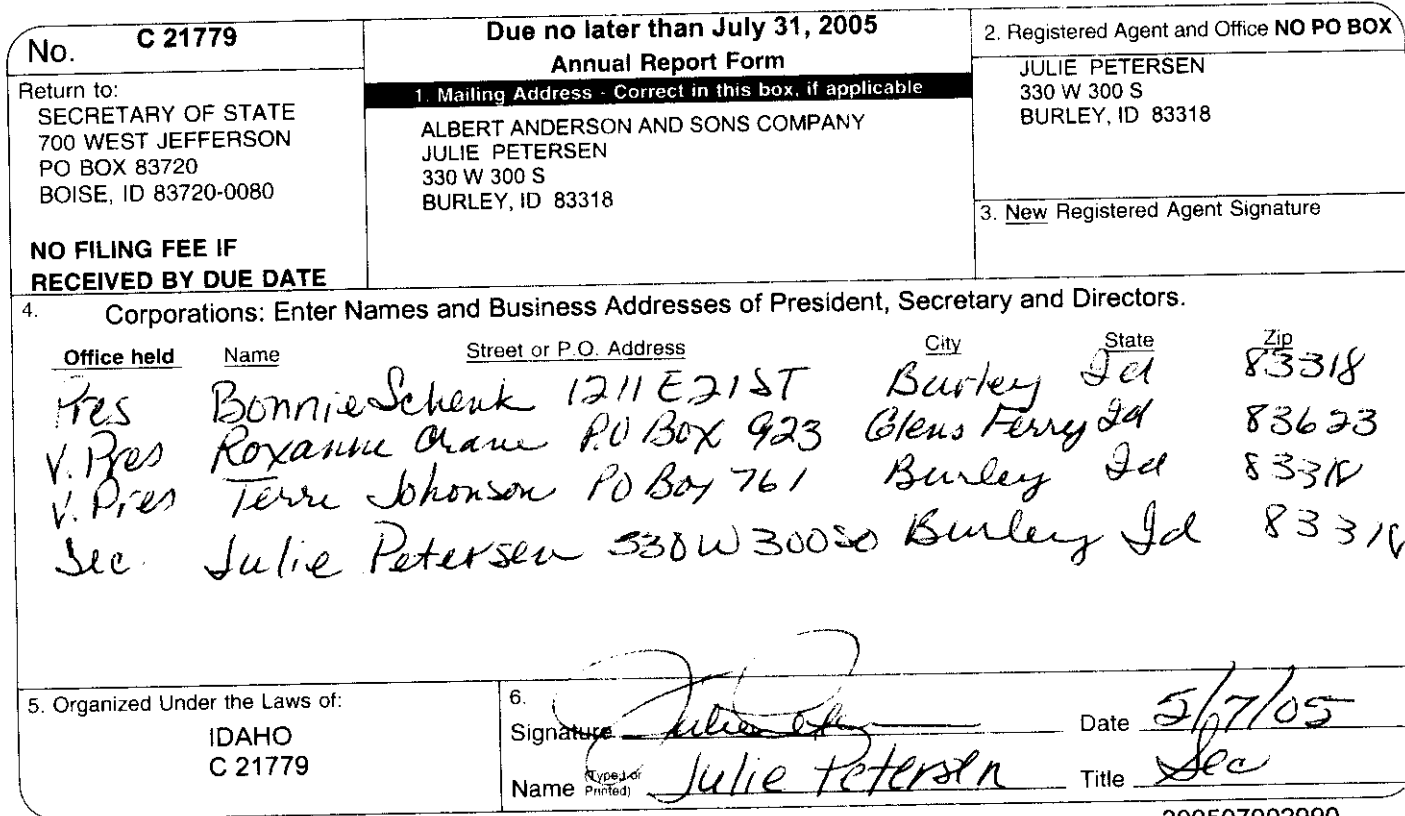 No. C 21779
Return to:
SECRETARY OF STATE
700 WEST JEFFERSON
PO BOX 83720
BOISE, ID 83720-0080
NO FILING FEE IF
RECEIVED BY DUE DATE
Due no later than July 31, 2005
Annual Report Form
1. Mailing Address - Correct in this box, if applicable
ALBERT ANDERSON AND SONS COMPANY
JULIE PETERSEN
330 W 300 S
BURLEY, ID 83318
2. Registered Agent and Office NO PO BOX
JULIE PETERSEN
330 W 300 S
BURLEY, ID 83318
3. New Registered Agent Signature
4. Corporations: Enter Names and Business Addresses of President, Secretary and Directors.
Office held Name Street or P.O. Address City State Zip
Pres Bonnie Schenk 1211 E 21 ST Burley Id 83318
V. Pres Roxanne Crane P.O Box 923 Glens Ferry Id 83623
V. Pres Terre Johonson PO Box 761 Burley Id 83318
Sec. Julie Petersen 330 W 300 So Burley Id 83318
5. Organized Under the Laws of:
IDAHO
C 21779
6.
Signature Date 5/7/05
Name (Typed or Printed) Julie Petersen Title Sec